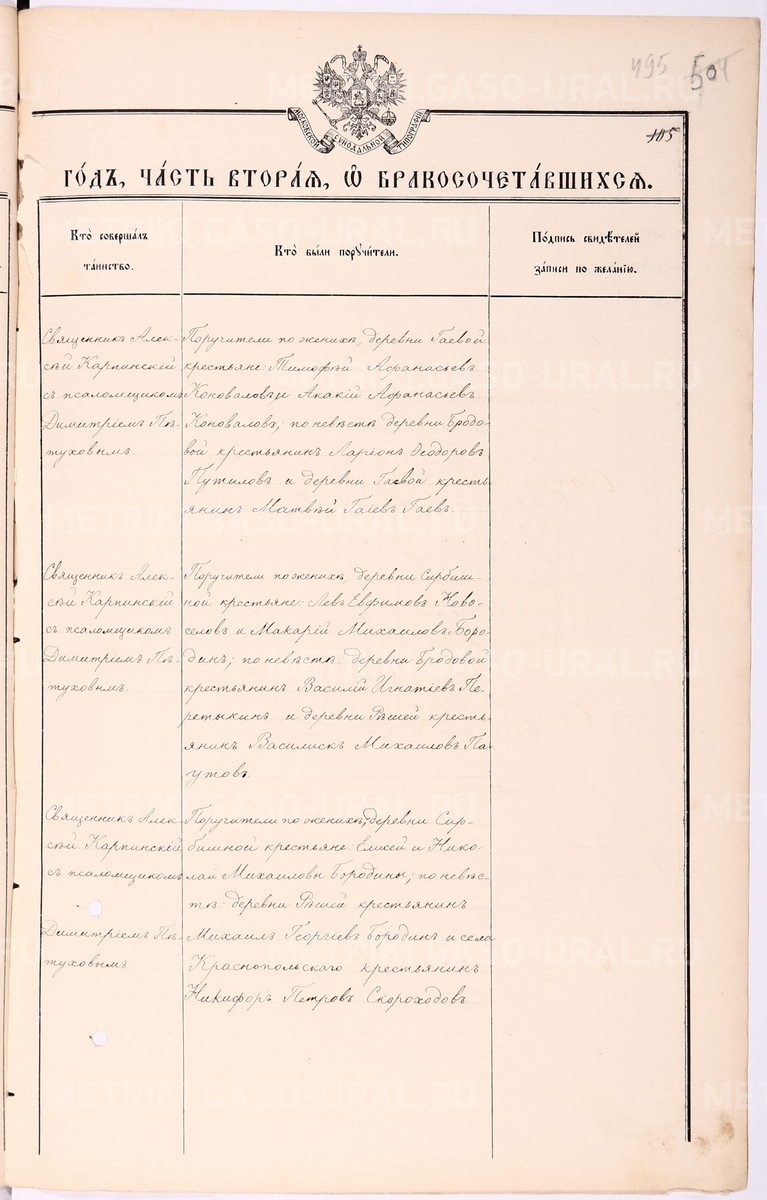 495 501
МОСКОВСКОЙ СѴНОДАЛЬНОЙ ТИПОГРАФІИ
105
ГО́ДЪ, ЧА́СТЬ ВТОРА́Я, Ѽ БРАКОСОЧЕТА́ВШИХСЯ.
Кто̀ соверша́лъ
та́инство.
Кто̀ бы́ли порꙋчи́тели.
По́дпись свидѣ́телей
за́писи по жела́нїю.
Священникъ Алек-
сѣй Карпинскій
съ псаломщикомъ
Димитріемъ Пѣ-
туховымъ.
Поручители по женихѣ, деревни Гаевой
крестьяне: Тимофѣй Афанасьевъ
Коноваловъ и Акакій Афанасьевъ
Коноваловъ; по невѣстѣ деревни Бродо-
вой крестьянинъ Ларіонъ Ѳеодоровъ
Путиловъ и деревни Гаевой кресть-
янинъ Матвѣй Гаіевъ Гаевъ.
Священникъ Алек-
сѣй Карпинскій
съ псаломщикомъ
Димитріемъ Пѣ-
туховымъ.
Поручители по женихѣ, деревни Сирбиш-
ной крестьяне: Левъ Евфимовъ Ново-
селовъ и Макарій Михаиловъ Боро-
динъ; по невѣстѣ: деревни Бродовой
крестьянинъ Василій Игнатьевъ Пе-
ретыкинъ и деревни Рѣшей кресть-
янинъ Василискъ Михаиловъ Па-
утовъ.
Священникъ Алек-
сѣй Карпинскій
съ псаломщикомъ
Димитріемъ Пѣ-
туховымъ.
Поручители по женихѣ, деревни Сир-
бишной крестьяне: Елисей и Нико-
лай Михаиловы Бородины; по невѣс-
тѣ: деревни Рѣшей крестьянинъ
Михаилъ Георгіевъ Бородинъ и села
Краснопольскаго крестьянинъ
Никифоръ Петровъ Скороходовъ.
METRIKI.GASO-URAL.RU